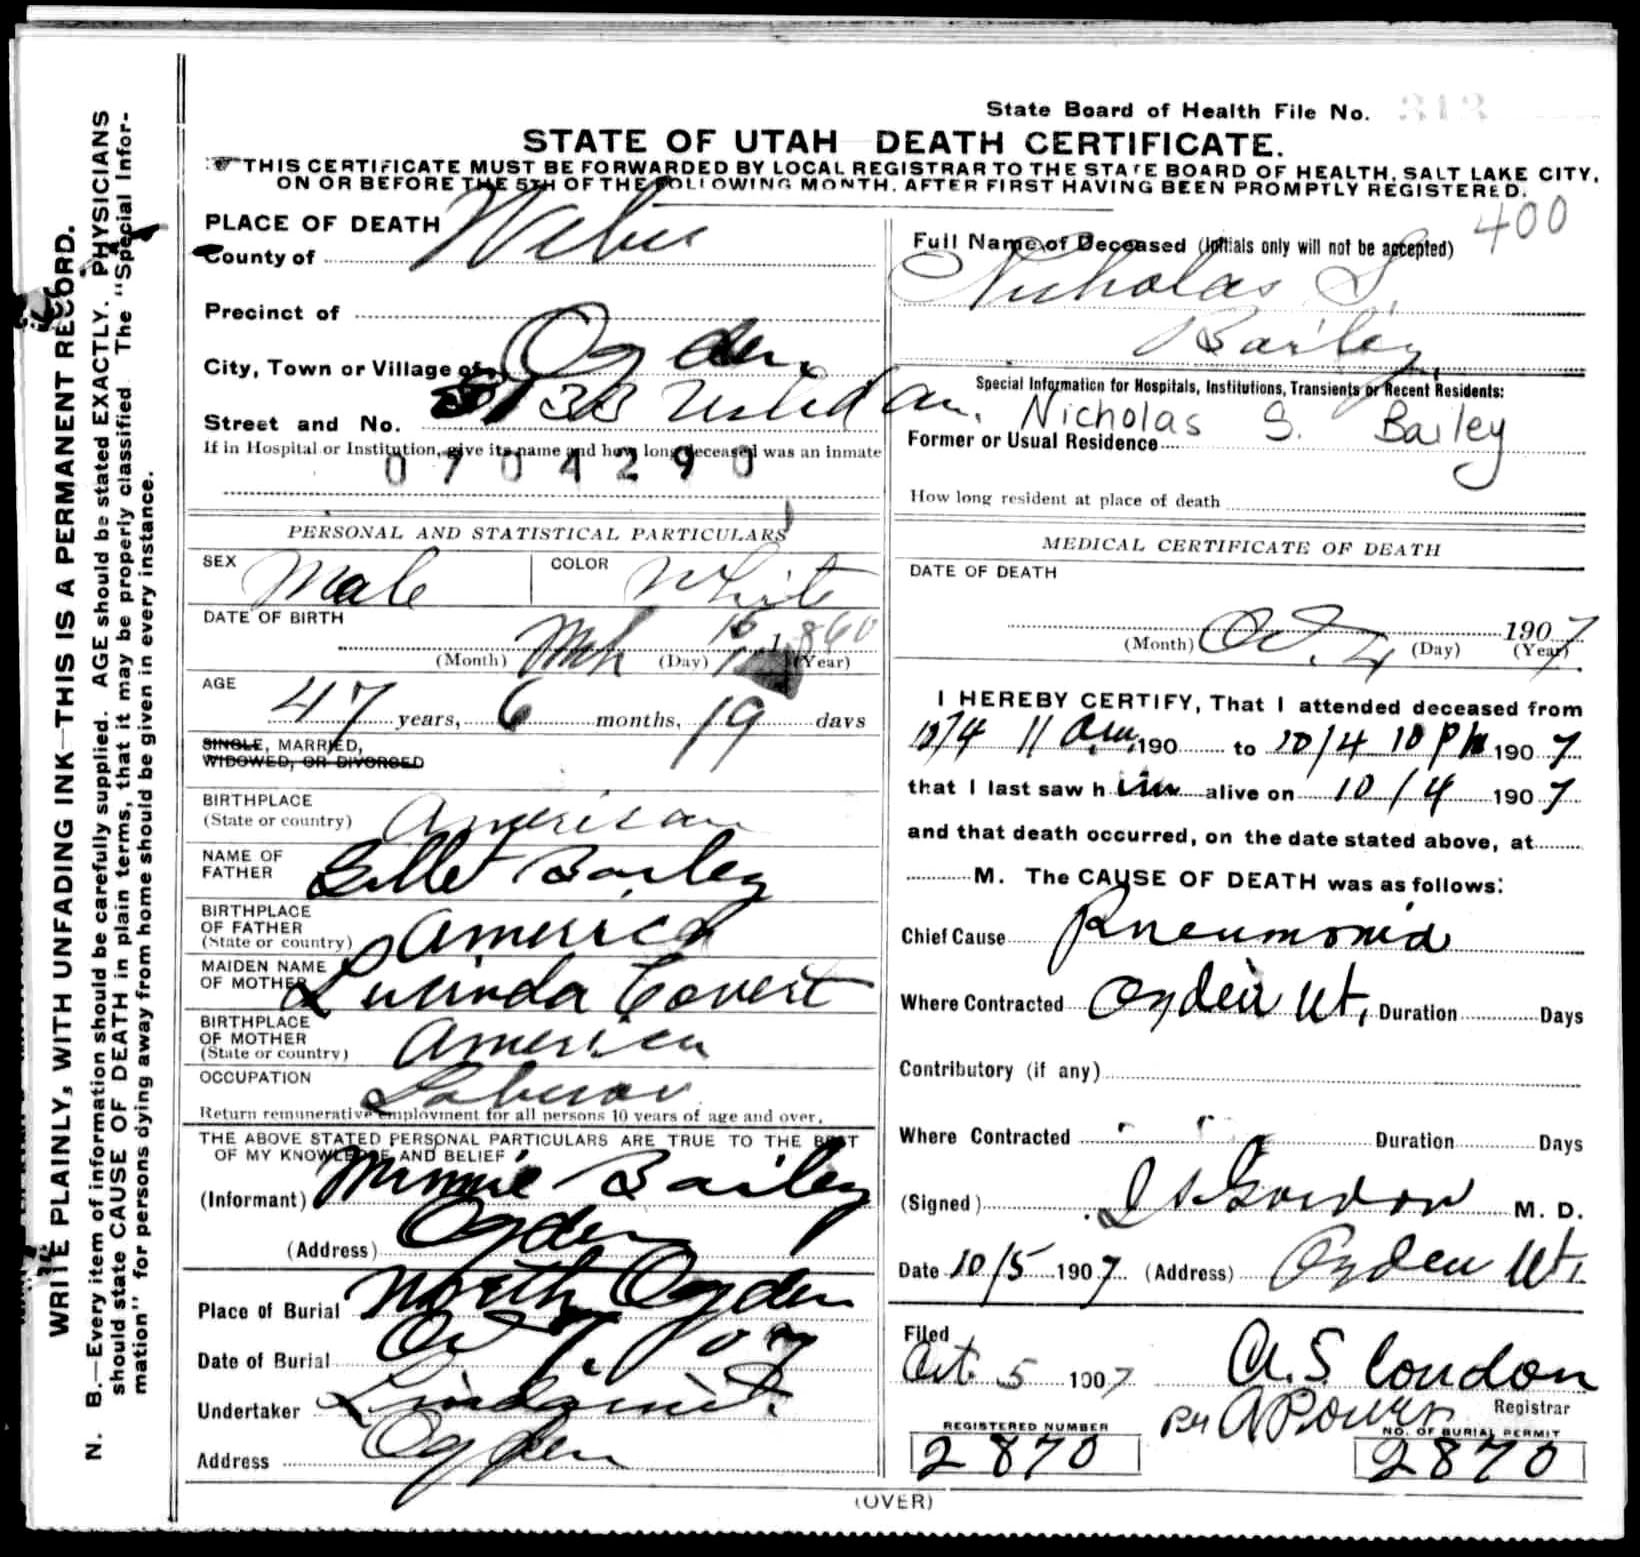 State Board of Health File No.
STATE OF UTAH DEATH CERTIFICATE.
THIS CERTIFICATE MUST BE FORWARDED BY LOCAL REGISTRAR TO THE STATE BOARD OF HEALTH, SALT LAKE CITY,
ON OR BEFORE THE 5TH OF THE FOLLOWING MONTH, AFTER FIRST HAVING BEEN PROMPTLY REGISTERED.
400
WRITE PLAINLY, WITH UNFADING INK—THIS IS A PERMANENT RECORD.
N. B.—Every item of information should be carefully supplied. AGE should be stated EXACTLY. PHYSICIANS
should state CAUSE OF DEATH in plain terms, that it may be properly classified. The "Special Infor-
mation" for persons dying away from home should be given in every instance.
PLACE OF DEATH
County of Weber
Precinct of
City, Town or Village of Ogden
Street and No.
If in Hospital or Institution, give its name and how long deceased was an inmate
0704290
PERSONAL AND STATISTICAL PARTICULARS
SEX Male COLOR White
DATE OF BIRTH
(Month) Mch (Day) 15 (Year) 1860
AGE
47 years, 6 months, 19 days
SINGLE, MARRIED,
WIDOWED, OR DIVORCED
BIRTHPLACE
(State or country) American
NAME OF
FATHER Bailey
BIRTHPLACE
OF FATHER
(State or country) America
MAIDEN NAME
OF MOTHER Lucinda Covert
BIRTHPLACE
OF MOTHER
(State or country) America
OCCUPATION Laborer
Return remunerative employment for all persons 10 years of age and over.
THE ABOVE STATED PERSONAL PARTICULARS ARE TRUE TO THE BEST
OF MY KNOWLEDGE AND BELIEF
(Informant) Minnie Bailey
(Address) Ogden
Place of Burial North Ogden
Date of Burial Oct 7. 07
Undertaker Lindquist
Address Ogden
Full Name of Deceased (Initials only will not be accepted)
Nicholas S
Bailey
Special Information for Hospitals, Institutions, Transients or Recent Residents:
Nicholas S. Bailey
Former or Usual Residence
How long resident at place of death
MEDICAL CERTIFICATE OF DEATH
DATE OF DEATH
(Month) Oct. (Day) 4 1907 (Year)
I HEREBY CERTIFY, That I attended deceased from
10/4 11 am 190 to 10/4 10 Pm 1907
that I last saw h im alive on 10/4 1907
and that death occurred, on the date stated above, at
M. The CAUSE OF DEATH was as follows:
Chief Cause Pneumonia
Where Contracted Ogden Ut, Duration Days
Contributory (if any)
Where Contracted Duration Days
(Signed) Gordon M. D.
Date 10/5 1907 (Address) Ogden Ut.
Filed
Oct. 5 1907 A. S Condon
Per A Powers Registrar
REGISTERED NUMBER
2870
NO. OF BURIAL PERMIT
2870
(OVER)